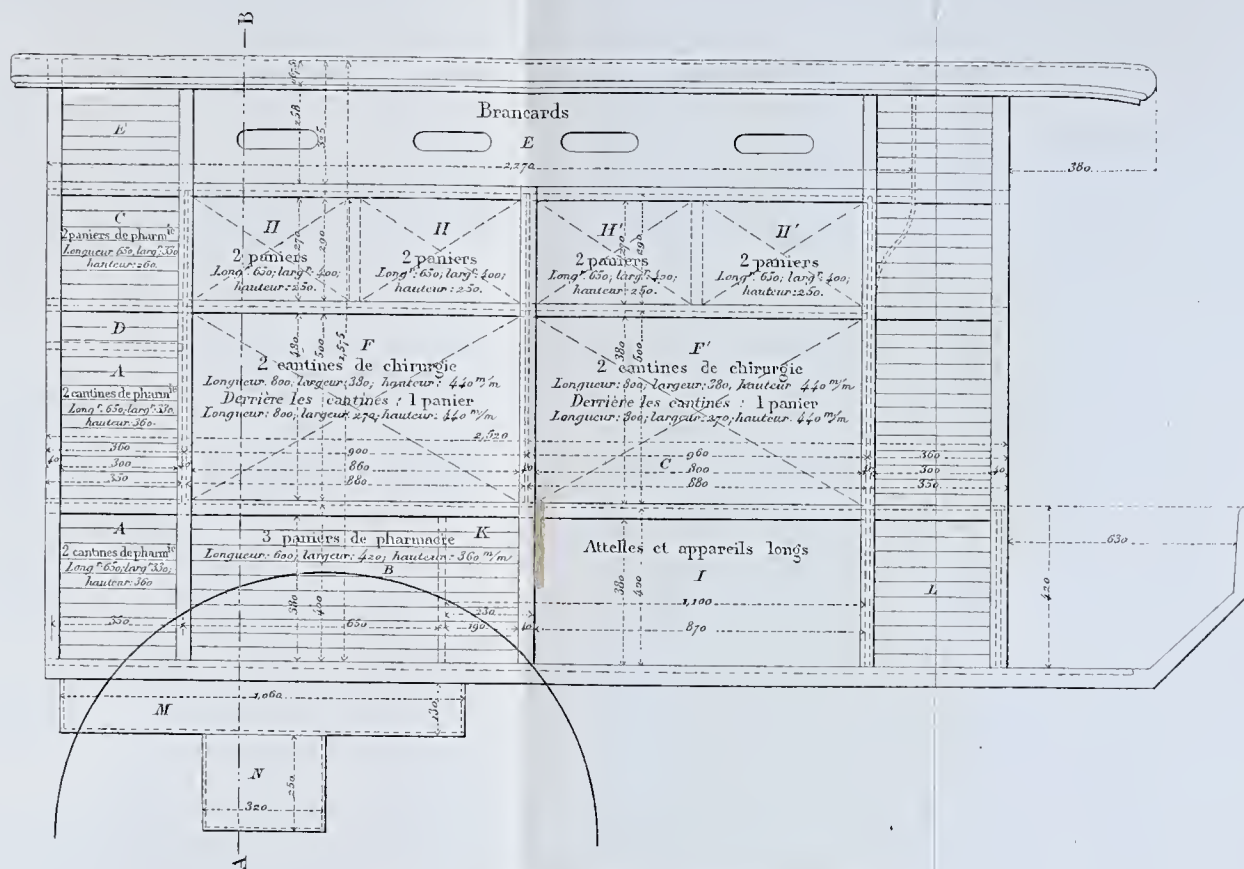 B
Brancards
E
E
2,270
380
0,675
258
325
C
2 paniers de pharm.ie
Longueur 650, larg.r 330
hauteur: 260.
H
2 paniers
Long.r 650; larg.r 400;
hauteur: 250.
270
290
H
2 paniers
Long.r 650; larg.r 400;
hauteur: 250.
H'
2 paniers
Long.r 650; larg.r 400;
hauteur: 250.
270
290
H'
2 paniers
Long.r 650; larg.r 400;
hauteur: 250.
D
A
2 cantines de pharm.ie
Long.r 650; larg.r 330
hauteur: 360.
360
40
300
350
F
2 cantines de chirurgie
Longueur: 800, largeur: 380; hauteur: 440 m/m
Derrière les cantines : 1 panier
Longueur: 800; largeur: 270; hauteur: 440 m/m
480
500
1,575
2,520
900
860
880
F'
2 cantines de chirurgie
Longueur: 800, largeur: 380, hauteur 440 m/m
Derrière les cantines : 1 panier
Longueur: 800; largeur: 270; hauteur: 440 m/m
380
500
960
C
800
880
360
300
40
350
A
2 cantines de pharm.ie
Long.r 650; larg.r 330;
hauteur: 360
350
3 paniers de pharmacie
K
Longueur: 600; largeur: 420; hauteur: 360 m/m
B
380
400
650
230
190
40
Attelles et appareils longs
I
380
400
1,100
870
L
630
420
M
1,060
130
N
250
320
A